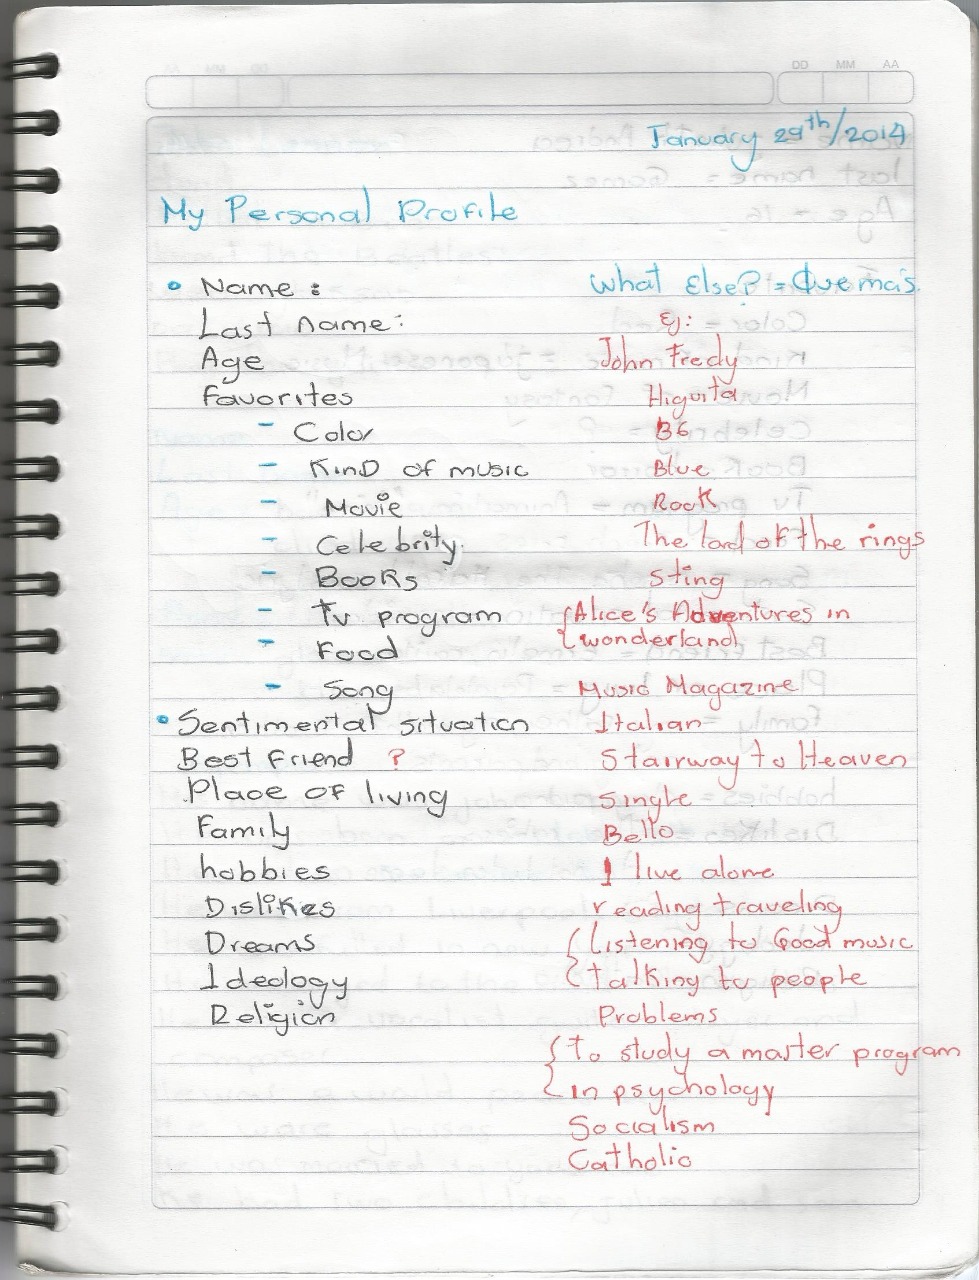 DD MM AA
January 29th/2014
My Personal Profile
• Name:
Last name:
Age
Favorites
- Color
- Kind of music
- Movie
- Celebrity.
- Books
- Tv program
- Food
- Song
• Sentimental situation
Best Friend ?
Place of living
Family
hobbies
Dislikes
Dreams
Ideology
Religion
What Else? = Que más.
Ej:
John Fredy
Higuita
36
Blue
Rock
The lord of the rings
Sting
Alice's Adventures in
wonderland
Music Magazine
Italian
Stairway to Heaven
Single
Bello
I live alone
reading traveling
listening to Good music
talking to people
Problems
To study a master program
in psychology
Socialism
Catholic